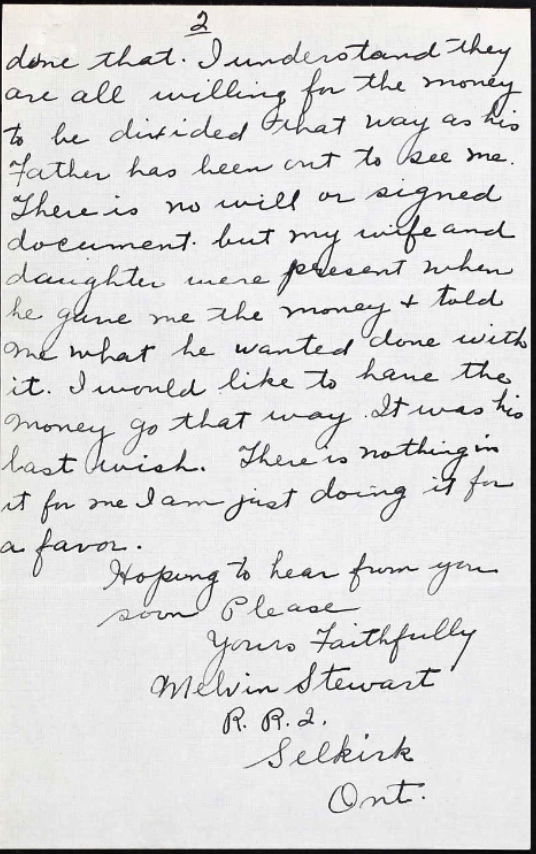 2
done that. I understand they
are all willing for the money
to be divided that way as his
Father has been out to see me.
There is no will or signed
document. but my wife and
daughter were present when
he gave me the money + told
me what he wanted done with
it. I would like to have the
money go that way. It was his
last wish. There is nothing in
it for me I am just doing it for
a favor.
Hoping to hear from you
soon Please
Yours Faithfully
Melvin Stewart
R. R. 2.
Selkirk
Ont.